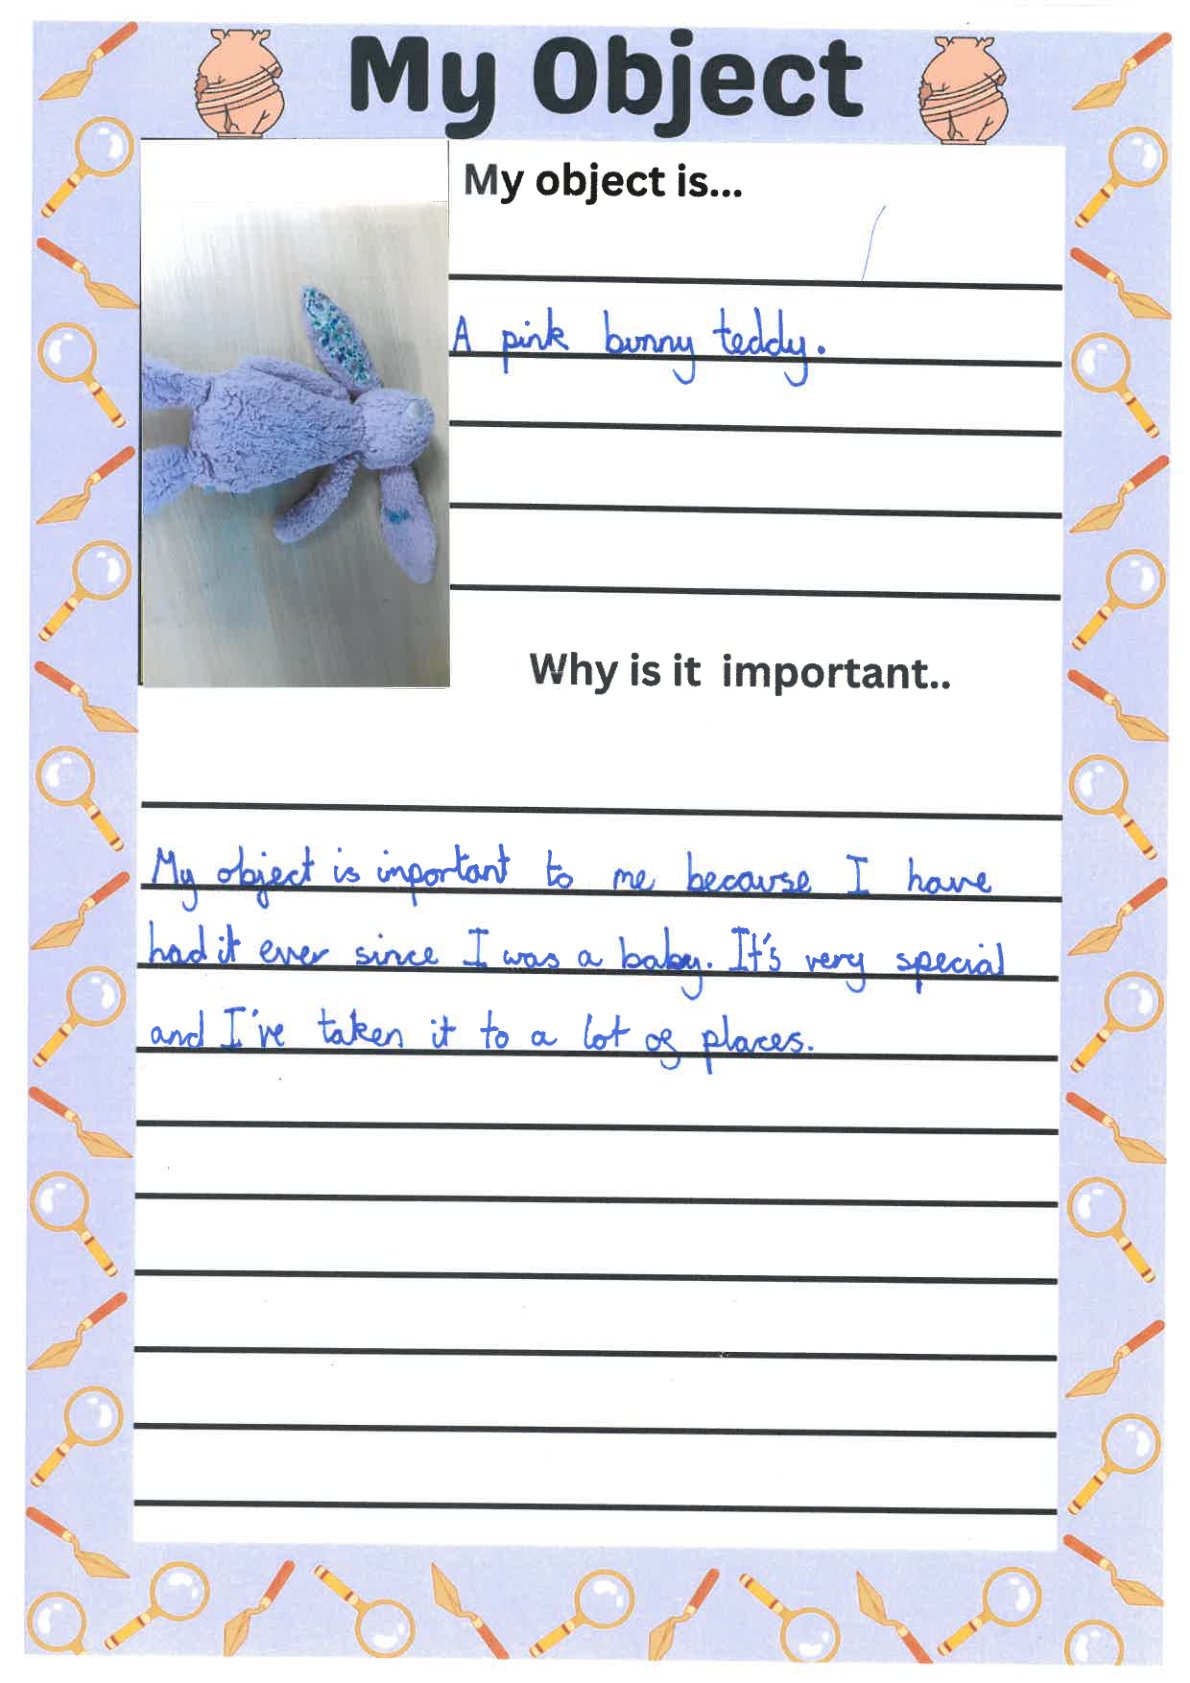 My Object
My object is...
A pink bunny teddy.
Why is it important..
My object is important to me because I have
had it ever since I was a baby. It's very special
and I've taken it to a lot of places.